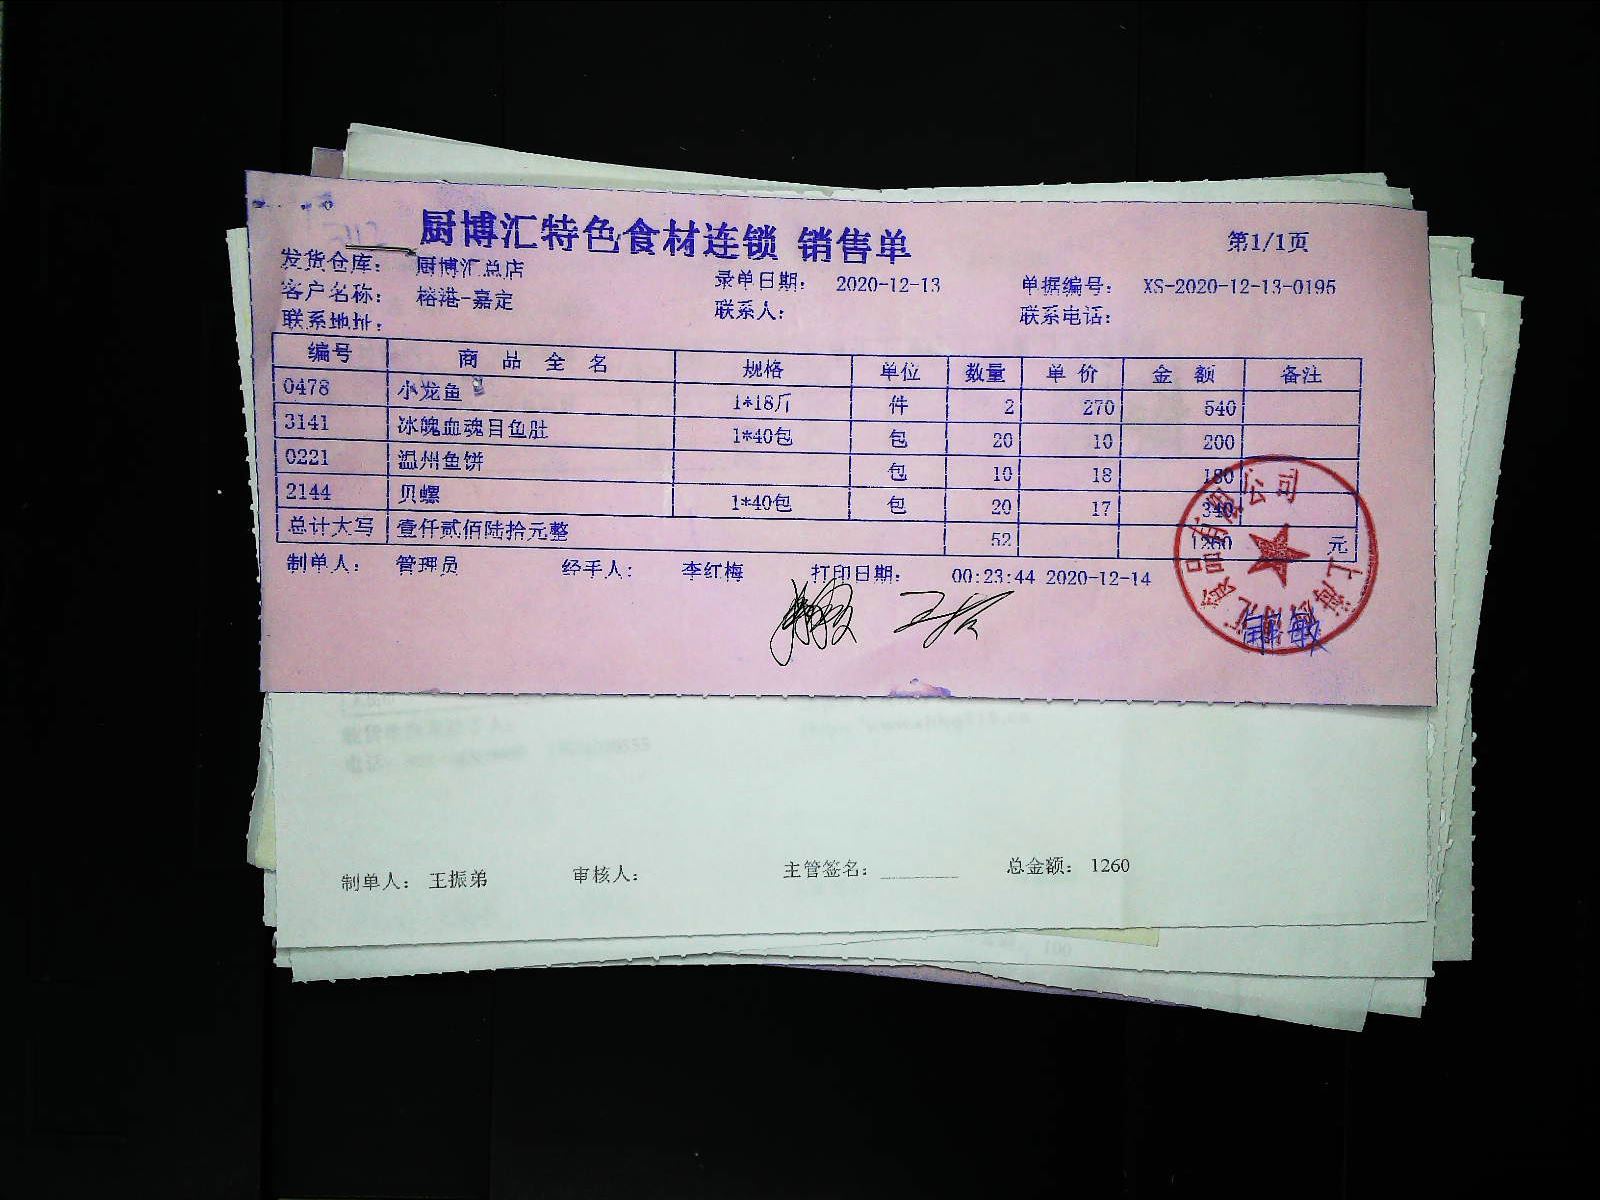 厨博汇特色食材连锁 销售单
第1/1页
发货仓库： 厨博汇总店 录单日期： 2020-12-13 单据编号： XS-2020-12-13-0195
客户名称： 榕港-嘉定 联系人： 联系电话：
联系地址：
编号 商品全名 规格 单位 数量 单价 金额 备注
0478 小龙鱼 1*18斤 件 2 270 540
3141 冰魄血魂目鱼肚 1*40包 包 20 10 200
0221 温州鱼饼 包 10 18 180
2144 贝螺 1*40包 包 20 17 340
总计大写 壹仟贰佰陆拾元整 52 1260 元
制单人： 管理员 经手人： 李红梅 打印日期： 00:23:44 2020-12-14
制单人： 王振弟 审核人： 主管签名： 总金额： 1260